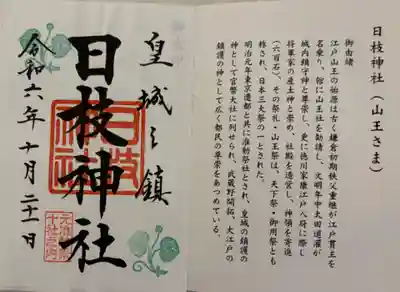 日枝神社（山王さま）
御由緒
江戸山王の始源は古く鎌倉初期秩父重継が江戸貫主を
名乗り、館に山王社を勧請し、文明年中太田道灌が
城内鎮守神と尊崇し、更に徳川家康江戸入府に際し
将軍家の産土神と崇め、社殿を造営し、神領を寄進
（六百石）、その祭礼・山王祭は、天下祭・御用祭とも
称され、日本三大祭の一とされた。
明治元年東京遷都と共に准勅祭社とされ、皇城の鎮護の
神として官幣大社に列せられ、武蔵野開拓、大江戸の
鎮護の神として広く都民の尊崇をあつめている。
皇城之鎮
日枝神社
日枝神社
令和六年十月二十一日
元准勅祭
十社之内